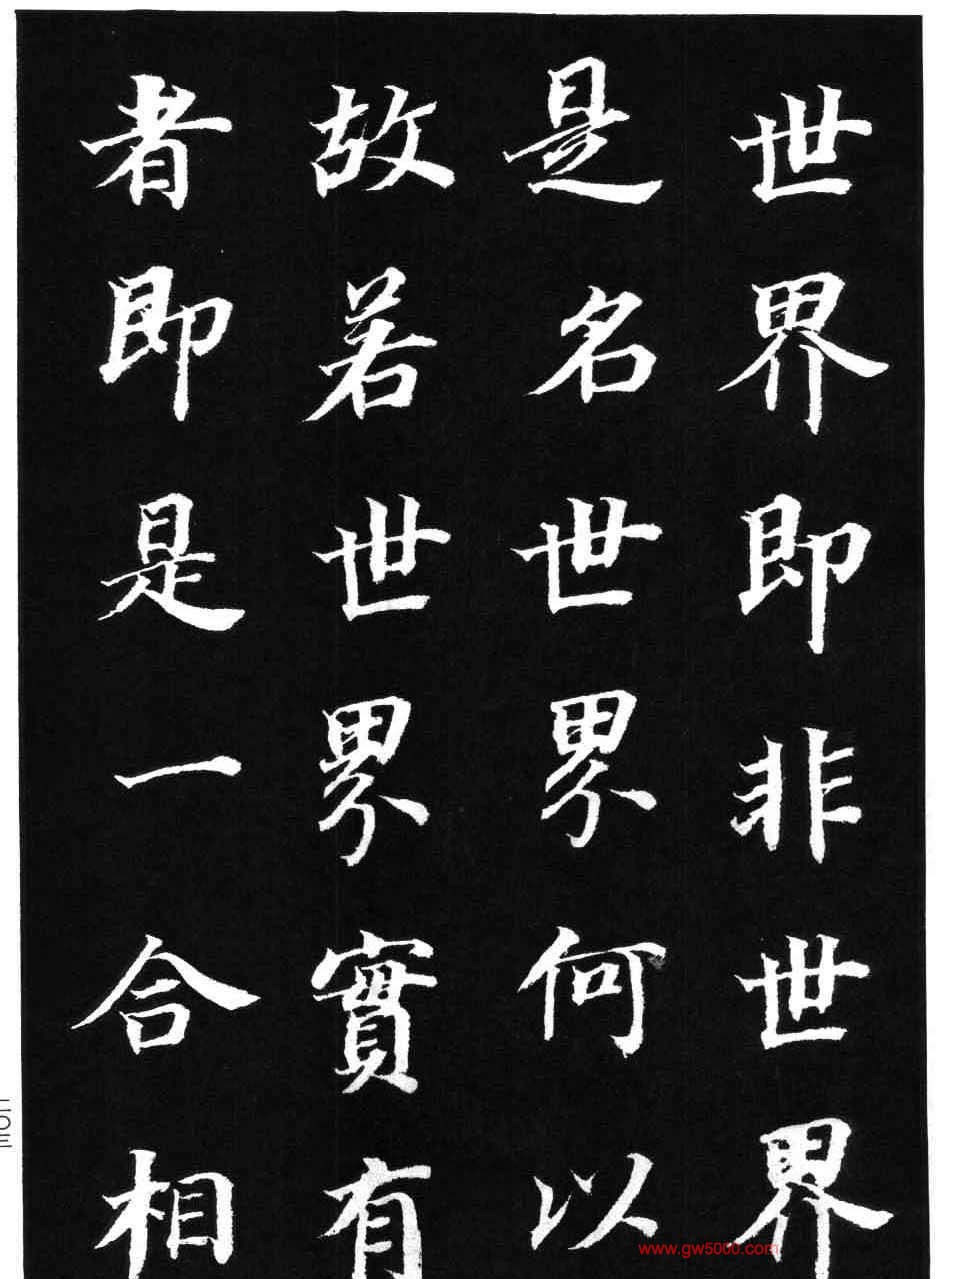 世界即非世界
是名世界何以
故若世界實有
者即是一合相
www.gw5000.com